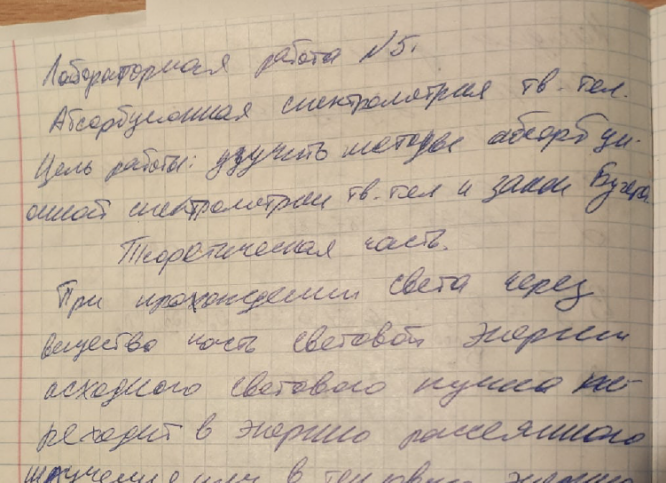 Лабораторная работа N5.
Абсорбционная спектрометрия тв. тел.
Цель работы: изучить методы абсорбци-
онной спектрометрии тв. тел и закон Бугера.
Теоретическая часть.
При прохождении света через
вещество часть световой энергии
исходного светового пучка пе-
реходит в энергию рассеянного
излучения или в тепловую энергию